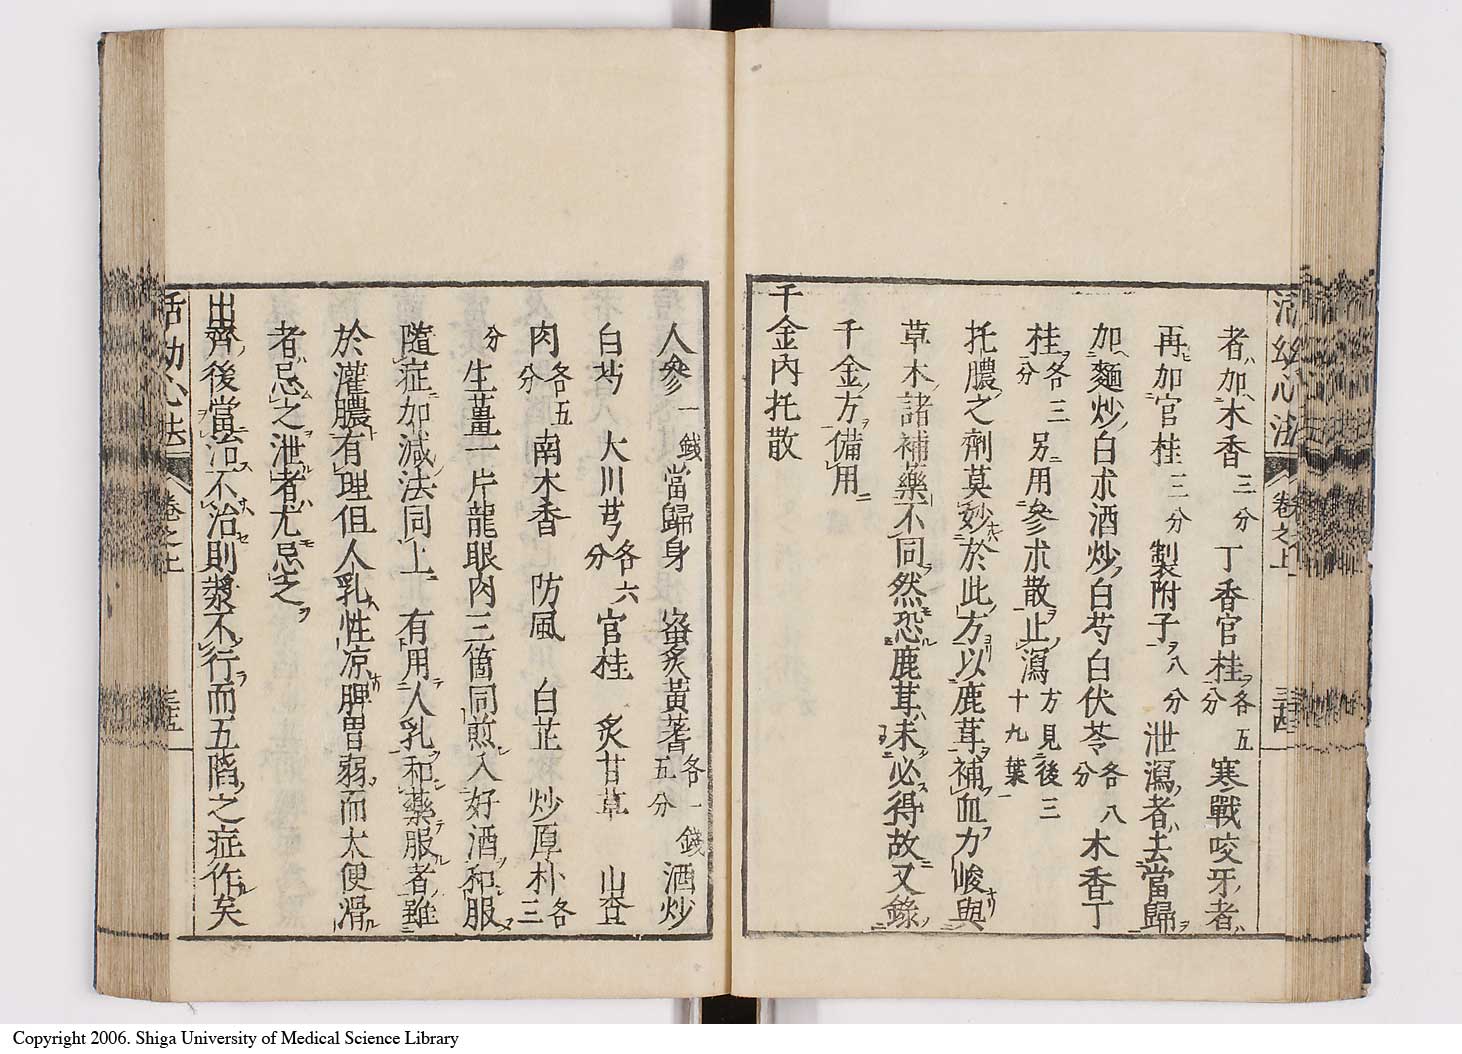 者加木香三分 丁香官桂各五分 寒戰咬牙者
再加官桂三分 製附子八分 泄瀉者去當歸
加麵炒白朮酒炒白芍白伏苓各八分 木香丁
桂各三分 另用參朮散止瀉方見後三十九葉
托膿之劑莫妙於此方以鹿茸補血力峻與
草木諸補藥不同然恐鹿茸未必得故又錄
千金方備用
千金內托散
活幼心法 卷之上 三十四
人參一錢 當歸身 蜜炙黃蓍各一錢五分 酒炒
白芍 大川芎各六分 官桂 炙甘草 山查
肉各五分 南木香 防風 白芷 炒厚朴各三
分 生薑一片龍眼肉三箇同煎入好酒和服
隨症加減法同上 有用人乳和藥服者雖
於灌膿有理但人乳性凉脾胃弱而大便滑
者忌之泄者尤忌之
出齊後當治不治則漿不行而五陷之症作矣
活幼心法 卷之上 三十五
Copyright 2006. Shiga University of Medical Science Library